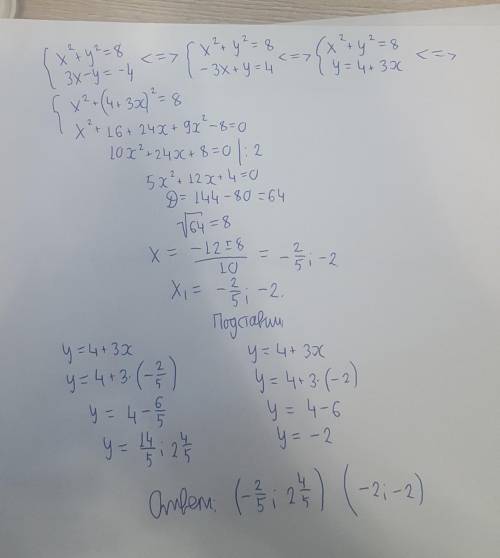 { x² + y² = 8 <=> { x² + y² = 8 <=> { x² + y² = 8 <=>
3x - y = -4   - 3x + y = 4   y = 4 + 3x
{ x² + (4 + 3x)² = 8
x² + 16 + 24x + 9x² - 8 = 0
10x² + 24x + 8 = 0 | : 2
5x² + 12x + 4 = 0
D = 144 - 80 = 64
√64 = 8
x = (-12 ± 8)/10 = -2/5 ; -2
x₁ = -2/5 ; -2.
Подставим
y = 4 + 3x   y = 4 + 3x
y = 4 + 3 · (-2/5)   y = 4 + 3 · (-2)
y = 4 - 6/5   y = 4 - 6
y = 14/5 ; 2 4/5   y = -2
Ответ: (-2/5 ; 2 4/5) (-2 ; -2)